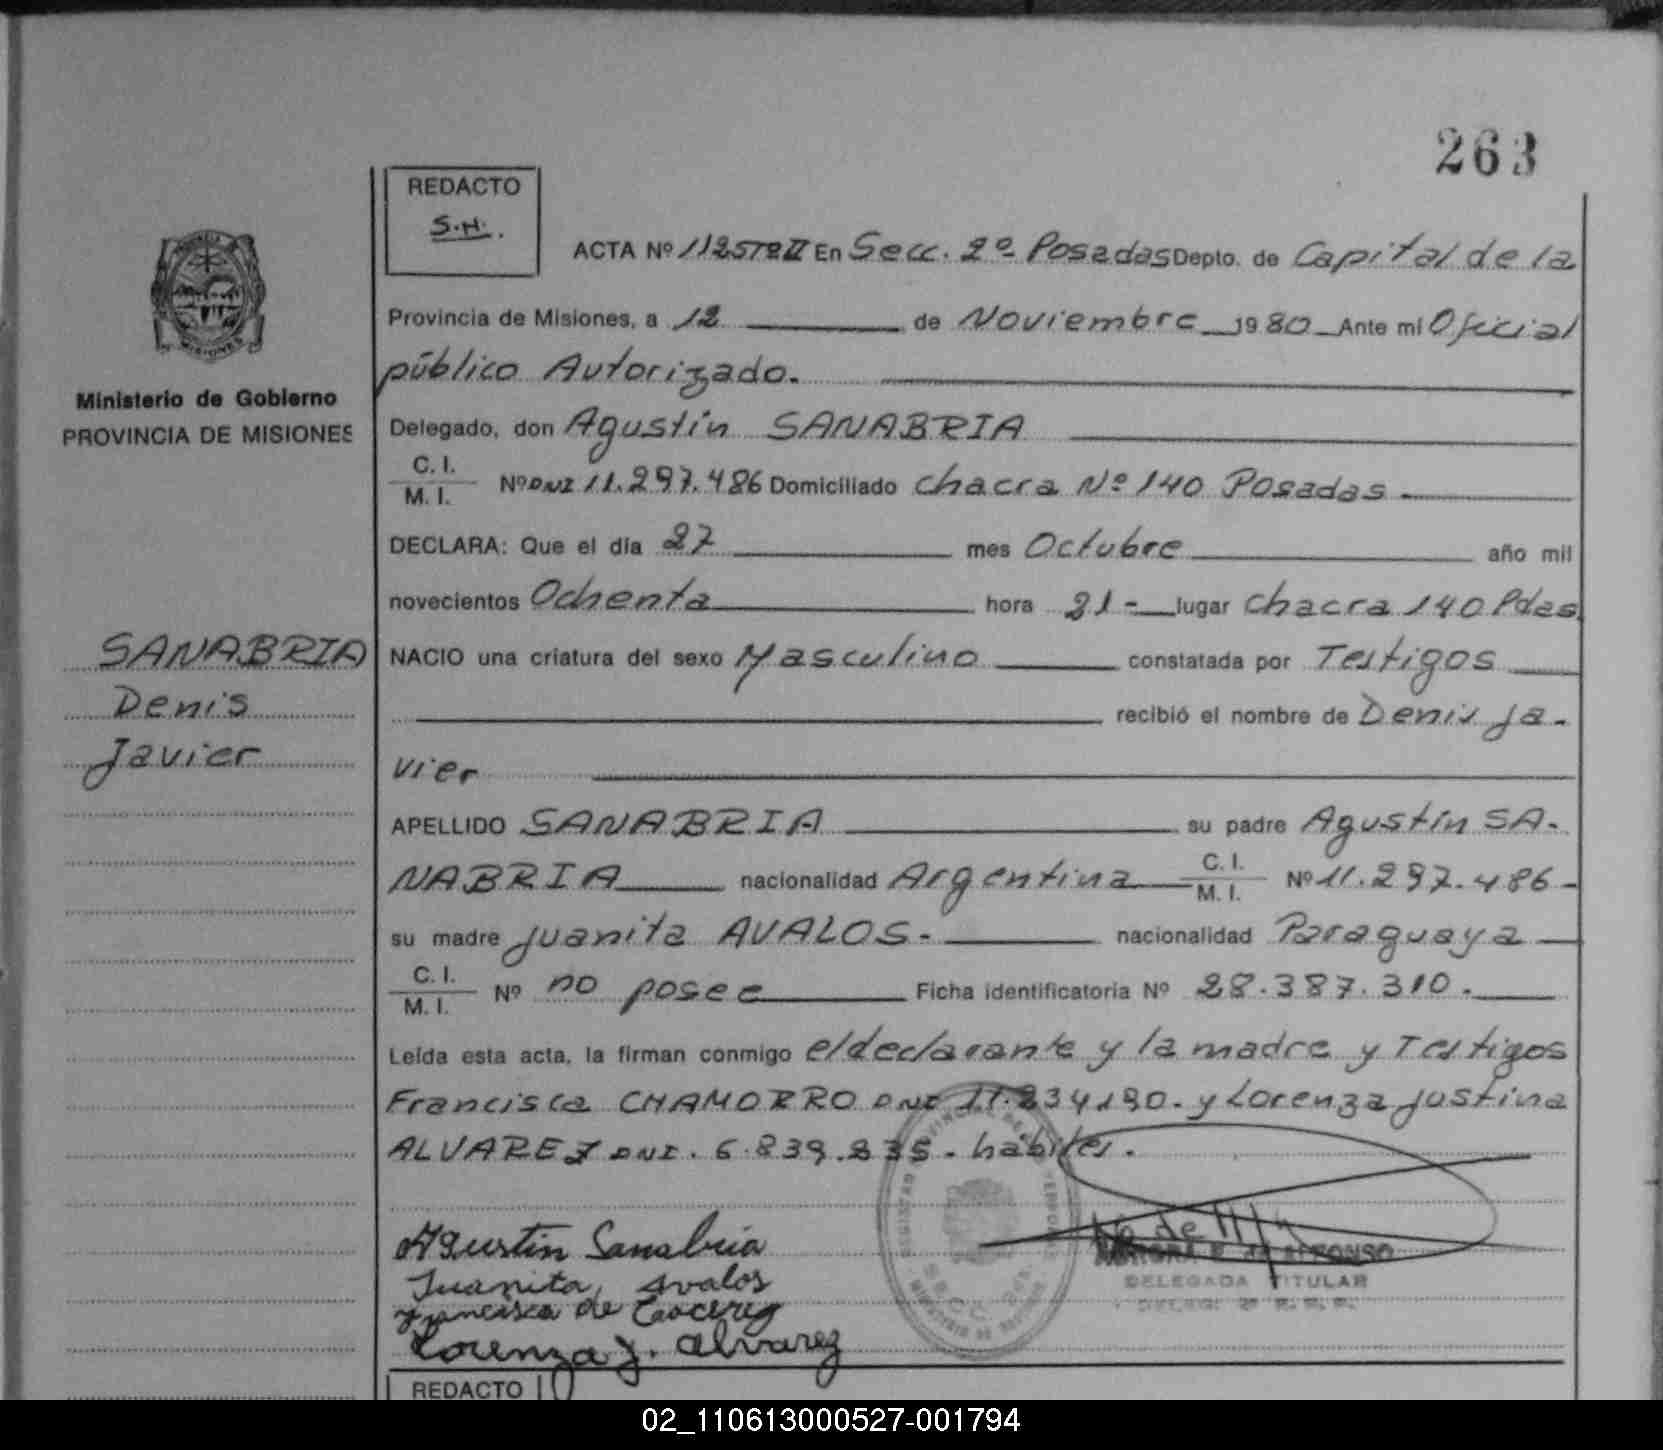 263
REDACTO
S.H.
ACTA Nº 1125 T2 II En Secc. 2º Posadas Depto. de Capital de la
Provincia de Misiones, a 12 de Noviembre 1980 Ante mi Oficial
público Autorizado.
Ministerio de Gobierno
PROVINCIA DE MISIONES
Delegado, don Agustín SANABRIA
C. I.
M. I. Nº DNI 11.297.486 Domiciliado chacra Nº 140 Posadas.
DECLARA: Que el día 27 mes Octubre año mil
novecientos Ochenta hora 21- lugar chacra 140 Pdas
SANABRIA
Denis
Javier
NACIO una criatura del sexo Masculino constatada por Testigos
recibió el nombre de Denis Ja-
vier
APELLIDO SANABRIA su padre Agustín SA-
NABRIA nacionalidad Argentina C. I. M. I. Nº 11.297.486-
su madre Juanita AVALOS.- nacionalidad Paraguaya
C. I.
M. I. Nº no posee Ficha identificatoria Nº 28.387.310.
Leída esta acta, la firman conmigo el declarante y la madre y Testigos
Francisca CHAMORRO DNI 11.234.190. y Lorenza Justina
ALVAREZ DNI. 6.839.835. hábiles.
Agustín Sanabria
Juanita, Avalos
Francisca de
Lorenza J. Alvarez
de ALFONSO
DELEGADA TITULAR
MISIONES
REDACTO
02_110613000527-001794